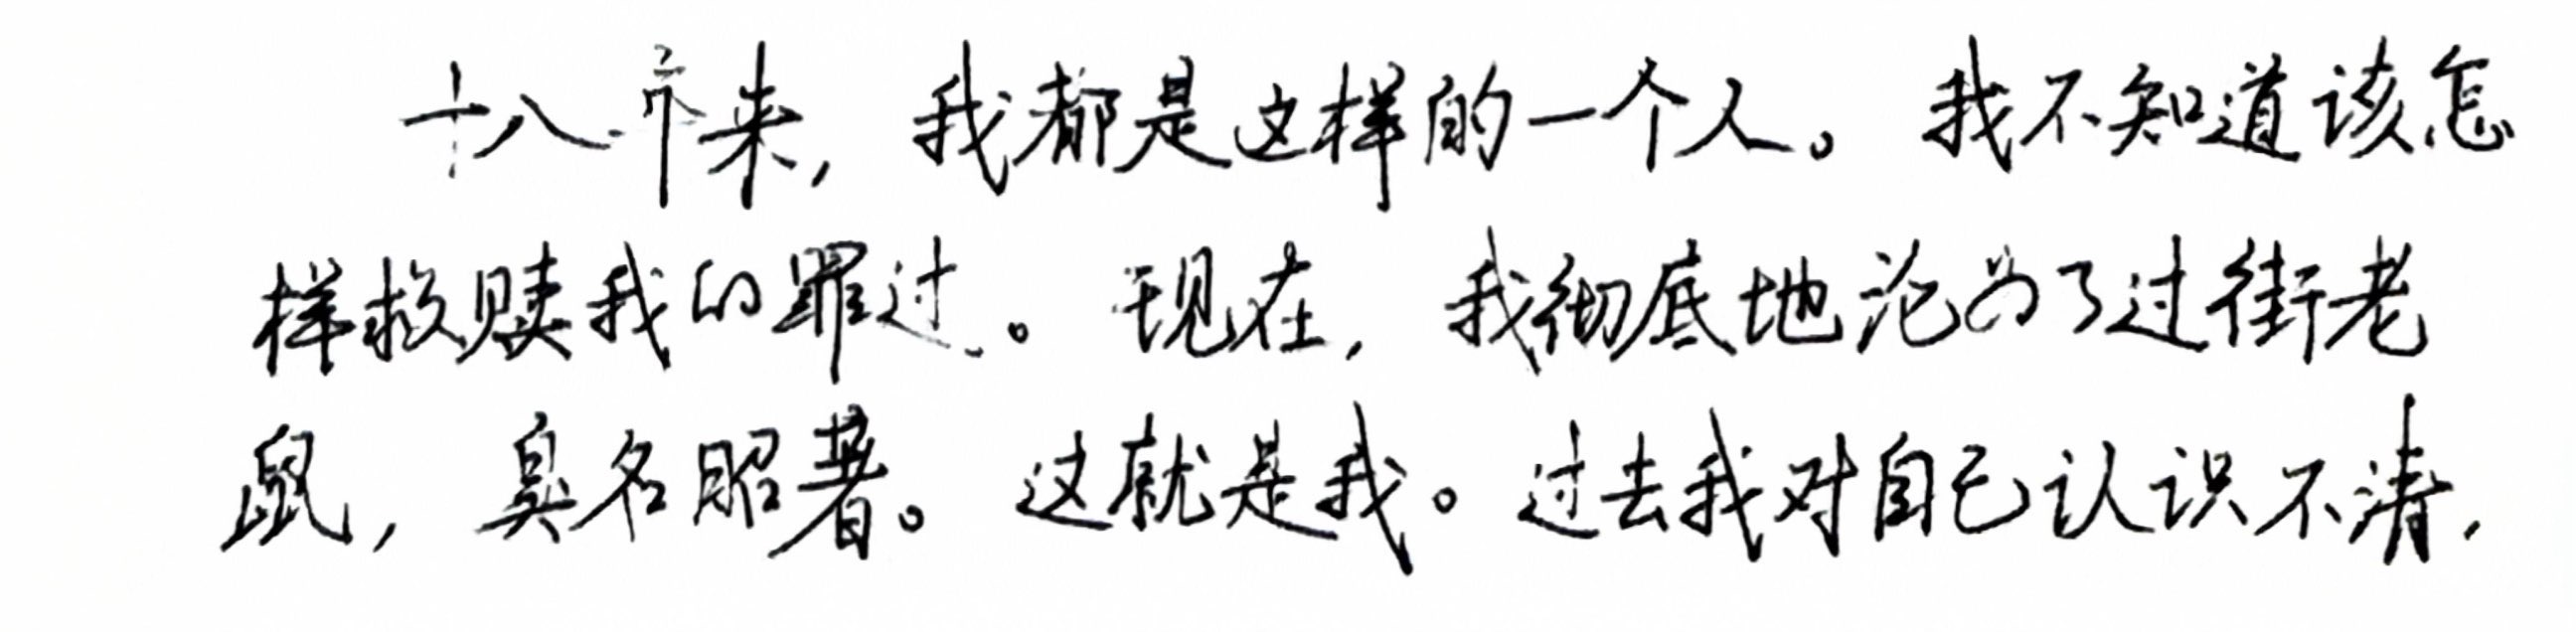 十八年来，我都是这样的一个人。我不知道该怎
样救赎我的罪过。现在，我彻底地沦为了过街老
鼠，臭名昭著。这就是我。过去我对自己认识不清，